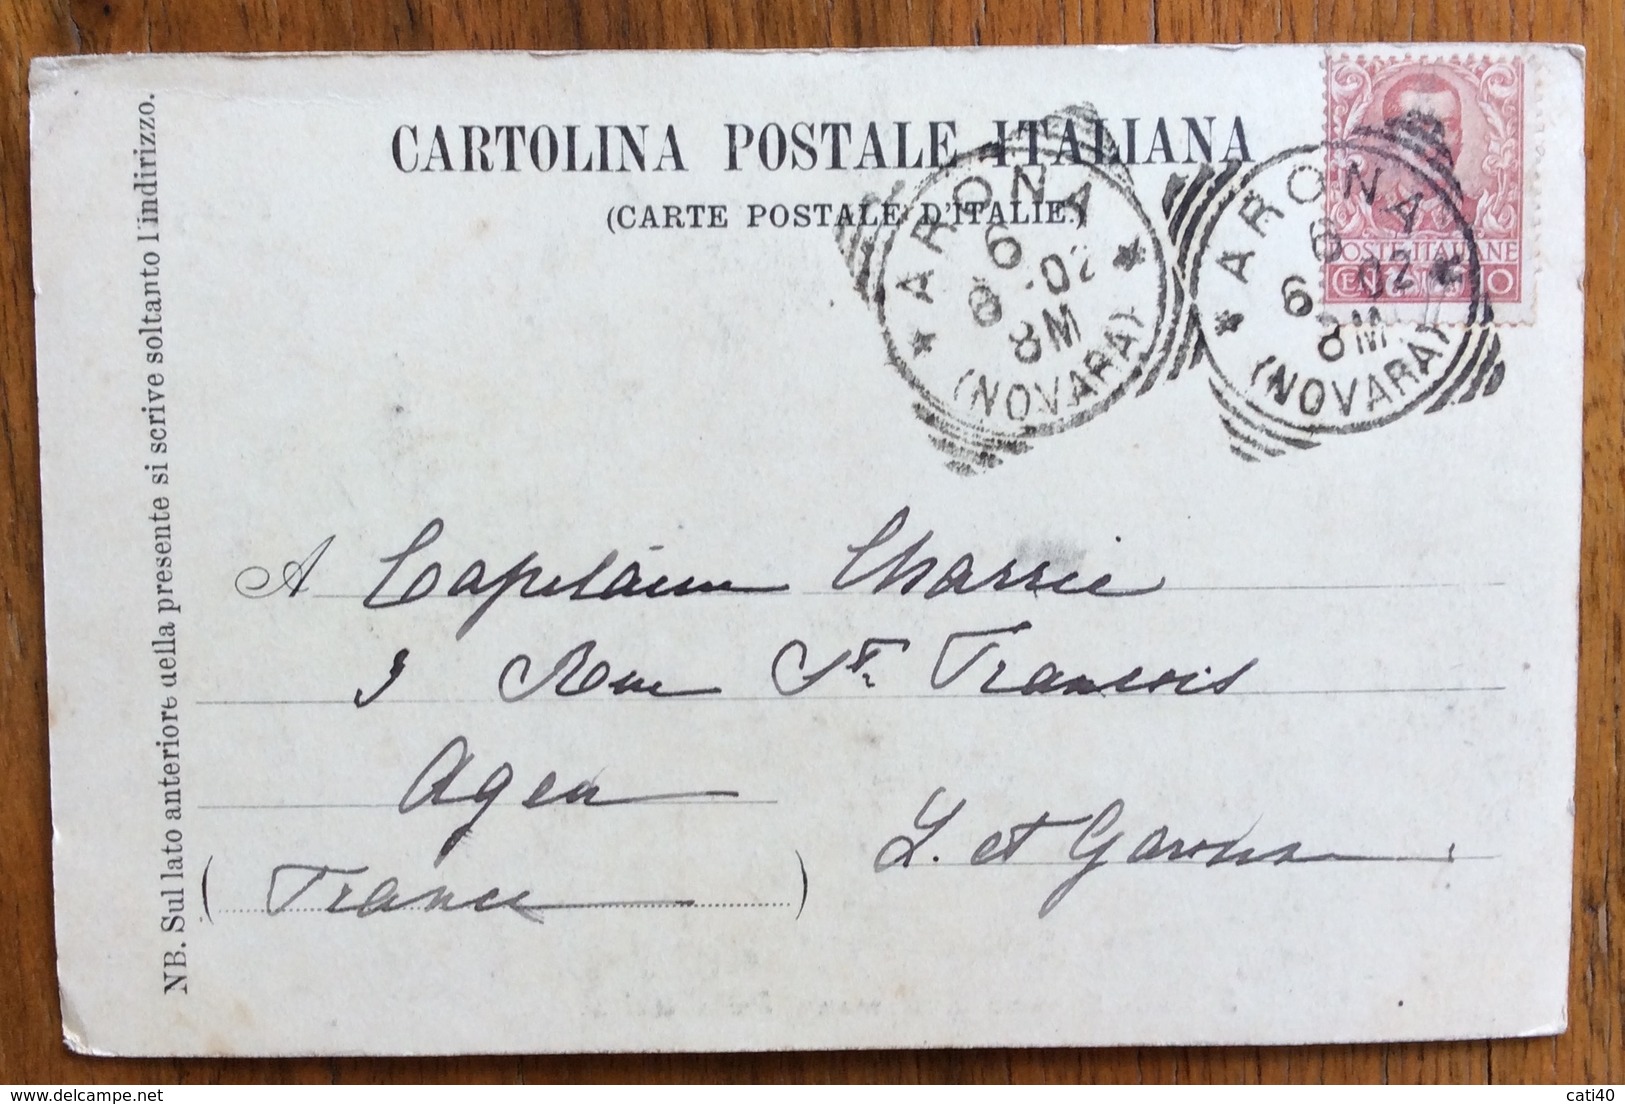 CARTOLINA POSTALE ITALIANA
(CARTE POSTALE D'ITALIE.)
NB. Sul lato anteriore della presente si scrive soltanto l'indirizzo.
ARONA
6
6 .02
8M
(NOVARA)
ARONA
6
6 02
8M
(NOVARA)
POSTE ITALIANE
A Capitaine
3 Rue St. Francois
Agen
L. et Garonne
(France)
cati40